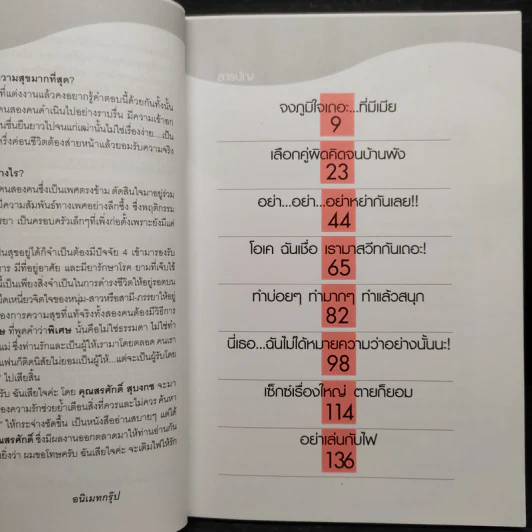 ความสุขมากที่สุด?
ที่แต่งงานแล้วคงอยากรู้คำตอบนี้ด้วยกันทั้งนั้น
คนสองคนดำเนินไปอย่างราบรื่น มีความเข้าอก
นชื่นยืนยาวไปจนแก่เฒ่านั้นไม่ใช่เรื่องง่าย....เป็น
ครึ่งค่อนชีวิตต้องส่ายหน้าแล้วยอมรับความจริง
างไร?
คนสองคนซึ่งเป็นเพศตรงข้าม ตัดสินใจมาอยู่ร่วม
มีความสัมพันธ์ทางเพศอย่างลึกซึ้ง ซึ่งพฤติกรรม
รยา เป็นครอบครัวเล็กๆที่เพิ่งก่อตั้งเพราะยังมีแต่
ป็นสุขอยู่ได้ก็จำเป็นต้องมีปัจจัย 4 เข้ามารองรับ
การ มีที่อยู่อาศัย และมียารักษาโรค ยามที่เจ็บไข้
นี้เป็นเพียงสิ่งจำเป็นในการดำรงชีวิตให้อยู่รอดบน
ยึดเหนี่ยวจิตใจของหนุ่ม-สาวหรือสามี-ภรรยาให้อยู่
องการความสุขที่แท้จริงทั้งสองคนต้องมีวิธีการ
ษ ที่พูดคำว่าพิเศษ นั้นคือไม่ใช่ธรรมดา ไม่ใช่ทำ
แม่ ซึ่งท่านรักและเป็นผู้ให้เรามาโดยตลอด คนเรา
แฟนก็ติดนิสัยไม่ยอมเป็นผู้ให้...แต่จะเป็นผู้รับโดย
" ไปเสียสิ้น
รับ ฉันเสียใจค่ะ โดย คุณสรศักดิ์ สุบงกช จะมา
องความรักช่วยย้ำเตือนสิ่งที่ควรและไม่ควร ค้นหา
" ให้กระจ่างชัดขึ้น เป็นหนังสืออ่านสบายๆ แต่ได้
คุณสรศักดิ์ ซึ่งมีผลงานออกตลาดมาให้ท่านอ่านกัน
ยิ่งว่า ผมขอโทษครับ ฉันเสียใจค่ะ จะเติมไฟให้รัก
อนิเมทกรุ๊ป
สารบัญ
จงภูมิใจเถอะ...ที่มีเมีย
9
เลือกคู่ผิดคิดจนบ้านพัง
23
อย่า...อย่า...อย่าหย่ากันเลย!!
44
โอเค ฉันเชื่อ เรามาสวีทกันเถอะ!
65
ทำบ่อยๆ ทำมากๆ ทำแล้วสนุก
82
นี่เธอ...ฉันไม่ได้หมายความว่าอย่างนั้นนะ!
98
เซ็กซ์เรื่องใหญ่ ตายก็ยอม
114
อย่าเล่นกับไฟ
136